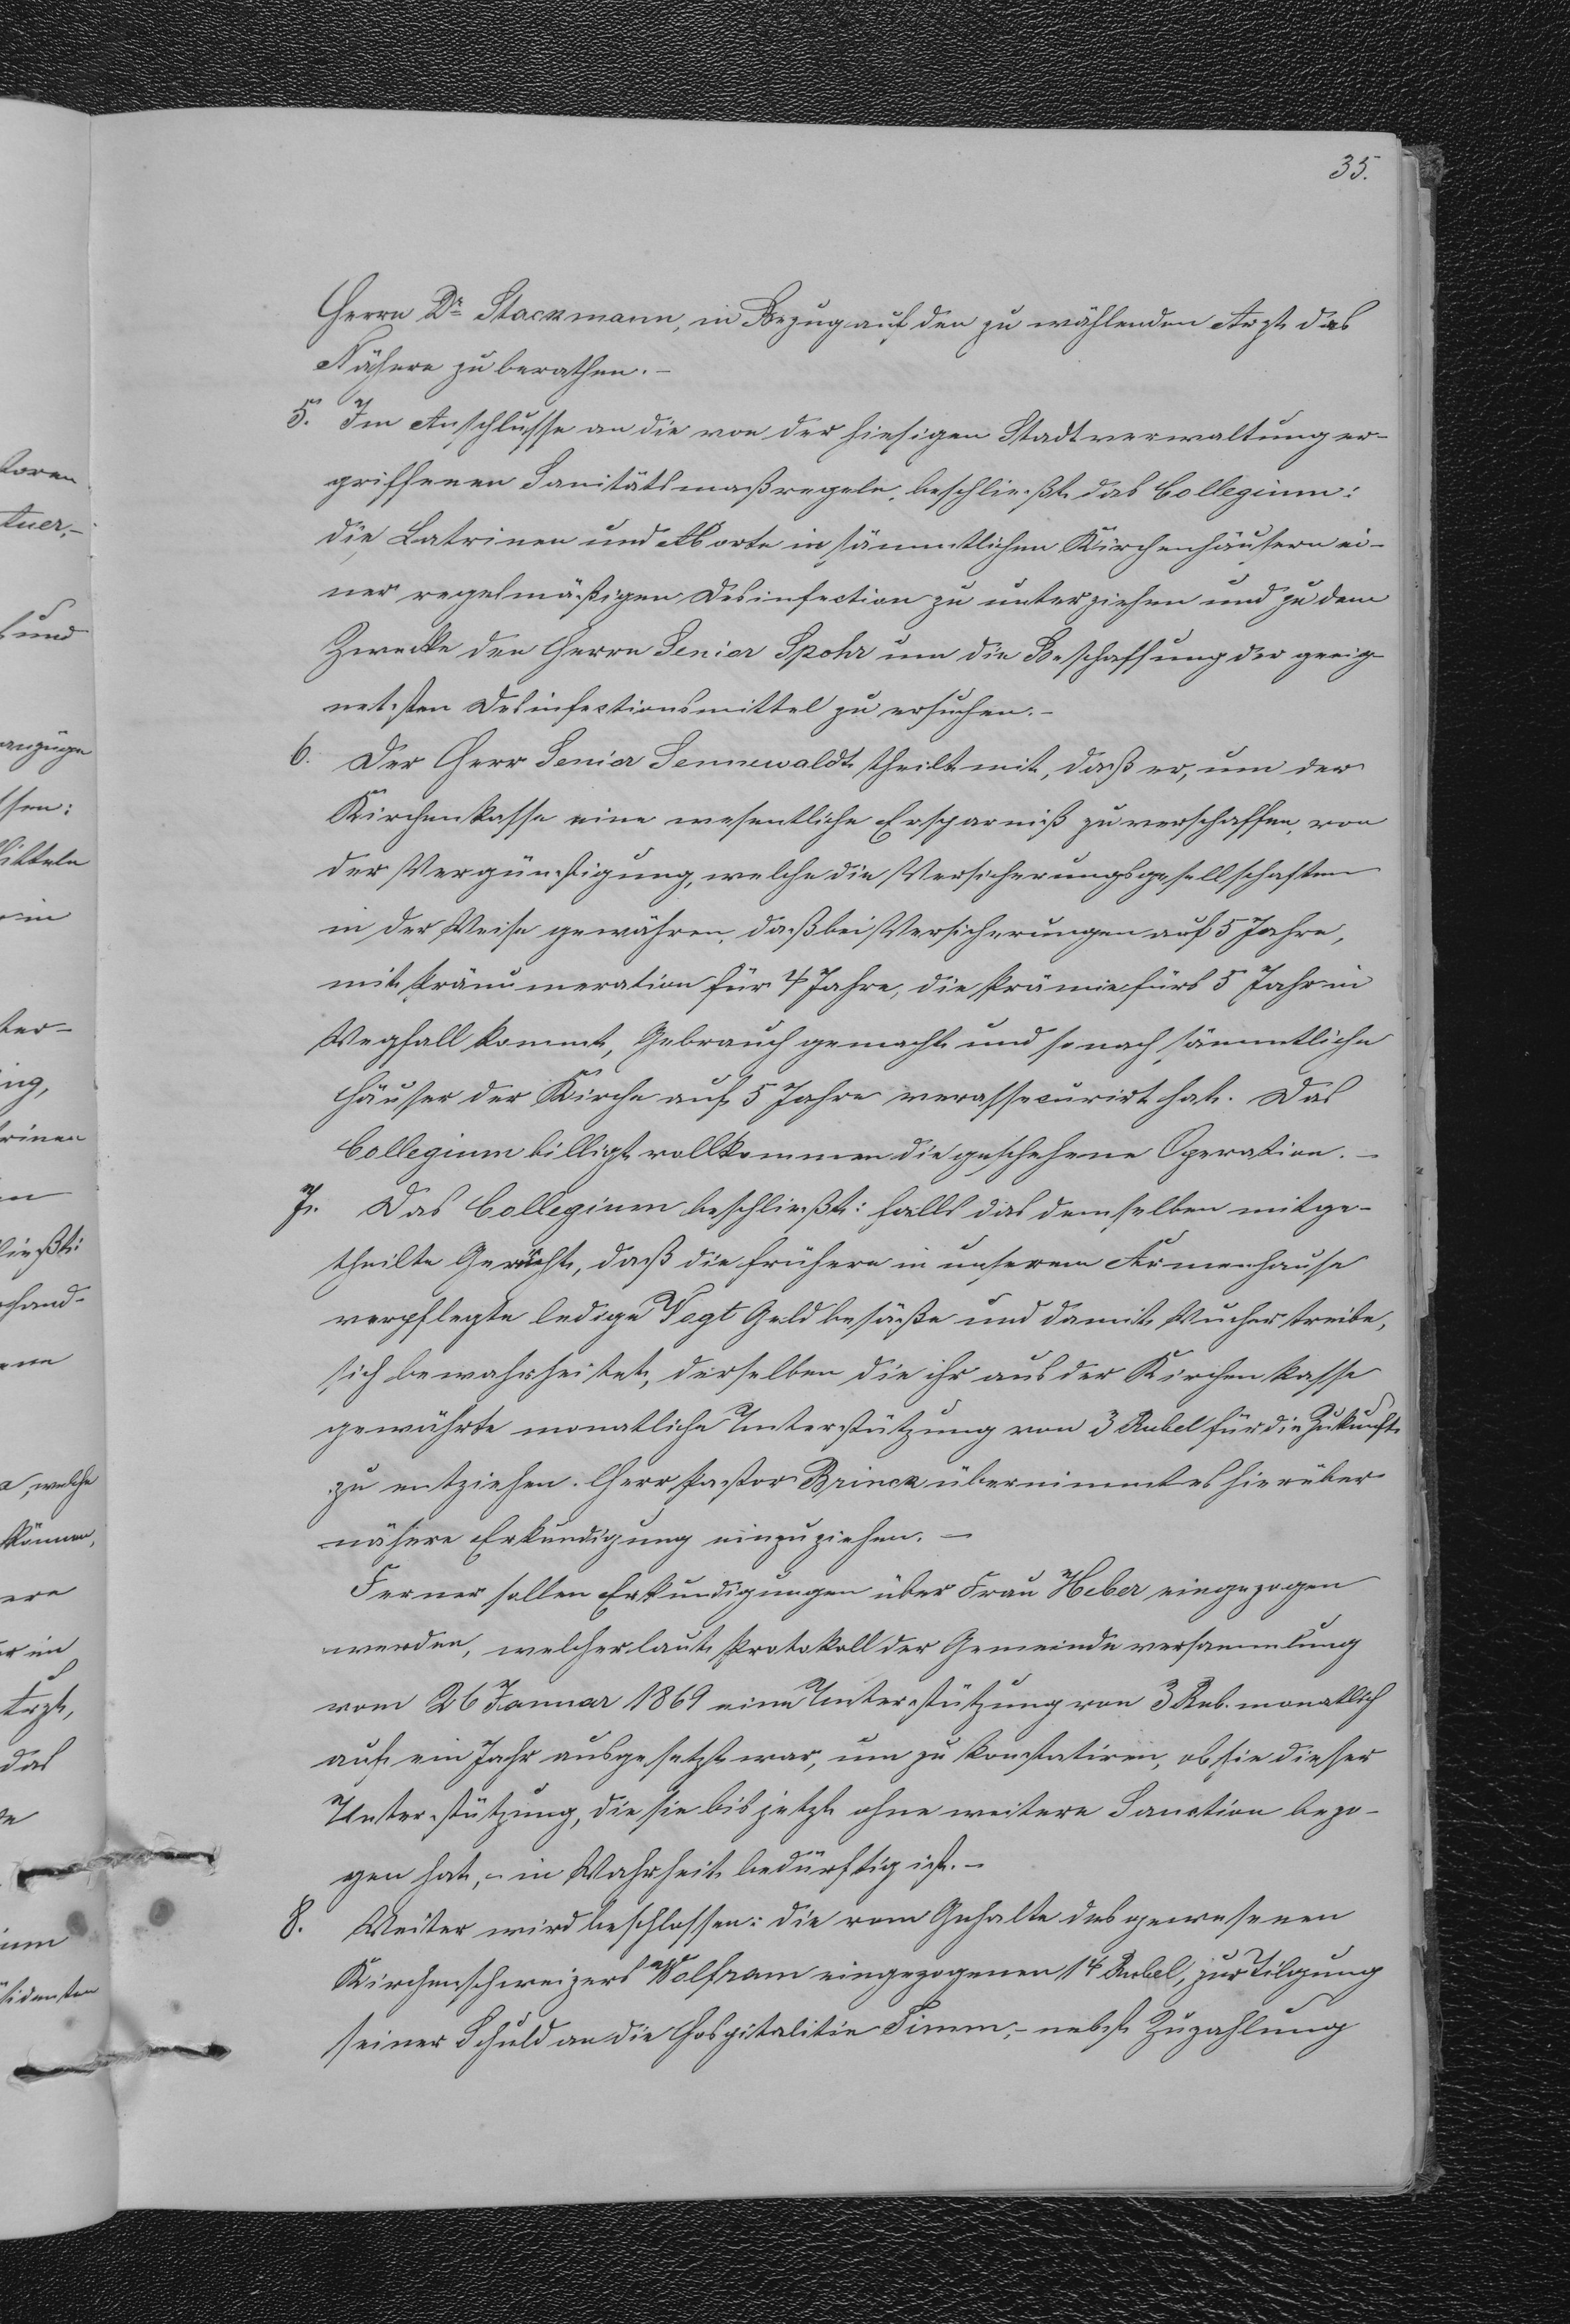 35.
Herrn Dr Stackmann, in Bezug auf den zu wählenden Arzt das
Nähere zu berathen. –
5. Im Anschlusse an die von der hiesigen Stadtverwaltung er-
griffenen Sanitätsmaßregeln, beschließt das Collegium:
die Latrinen und Aborte in sämmtlichen Kirchenhäusern ei-
ner regelmäßigen Desinfection zu unterziehen und zu dem
Zwecke den Herrn Senior Spohr um die Beschaffung der geeig-
netesten Desinfectionsmittel zu ersuchen. –
6. Der Herr Senior Sennewaldt theilt mit, daß er, um der
Kirchenkasse eine wesentliche Ersparniß zu verschaffen, von
der Vergünstigung, welche die Versicherungsgesellschaften
in der Weise gewähren, daß bei Versicherungen auf 5 Jahre,
mit Pränumeration für 4 Jahre, die Prämie fürs 5 Jahr in
Wegfall kommt, Gebrauch gemacht und so nach sämmtliche
Häuser der Kirche auf 5 Jahre verassecurirt hat. Das
Collegium billigt vollkommen die geschehene Operation. –
7. Das Collegium beschließt: falls das demselben mitge-
theilte Gerücht, daß die früher in unserem Armenhause
verpflegte ledige Vogt Geld besäße und damit Wucher treibe,
sich bewahrheitet, derselben die ihr aus der Kirchenkasse
gewährte monatliche Unterstützung von 3 Rubel für die Zukunft
zu entziehen. Herr Pastor Brinck übernimmt es hierüber
nähere Erkundigung einzuziehen. –
Ferner sollen Erkundigungen über Frau Heber eingezogen
werden, welcher laut Protokoll der Gemeindeversammlung
vom 26 Januar 1869 eine Unterstützung von 3 Rub. monatlich
auf ein Jahr ausgesetzt war, um zu konstatiren, ob sie dieser
Unterstützung, die sie bis jetzt ohne weitere Sanction bezo-
gen hat, – in Wahrheit bedürftig ist. –
8. Weiter wird beschlossen: die vom Gehalte des gewesenen
Kirchenschweizers Wolfram eingezogenen 14 Rubel, zur Tilgung
seiner Schuld an die Hospitalitin Timm, – nebst Zuzahlung